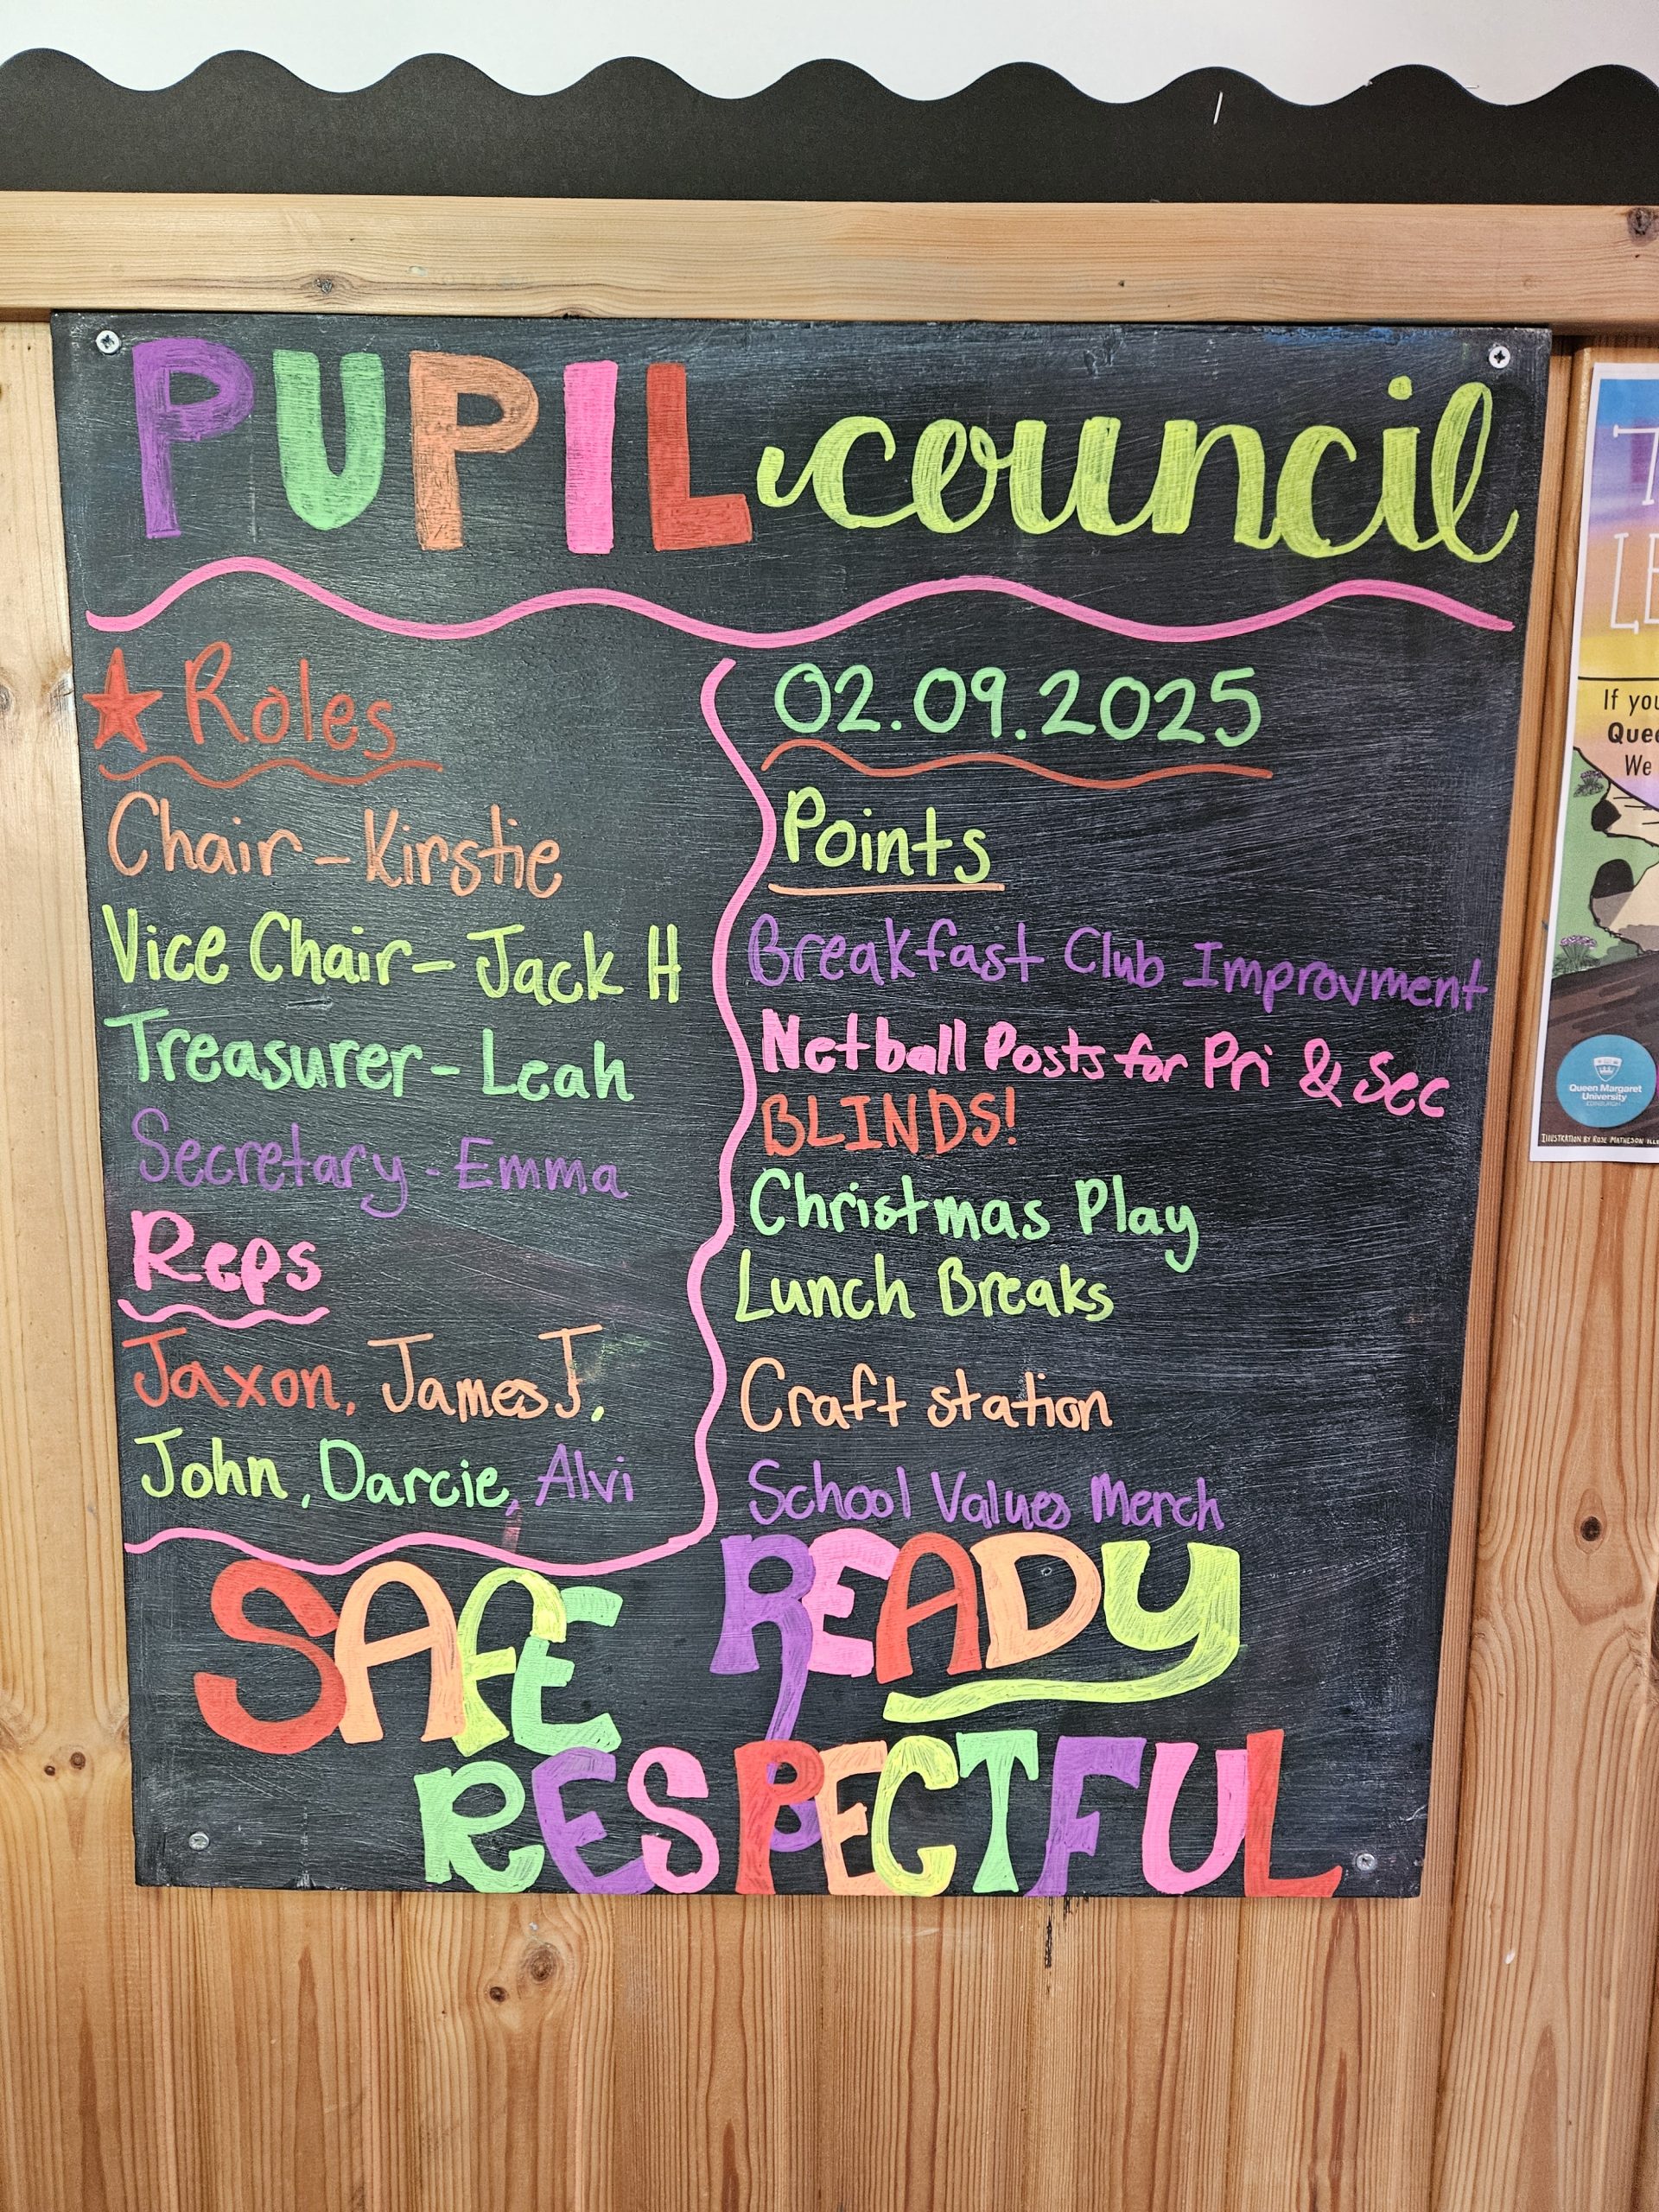 PUPIL council
Roles
Chair - Kirstie
Vice Chair - Jack H
Treasurer - Leah
Secretary - Emma
Reps
Jaxon, James J,
John, Darcie, Alvi
02.09.2025
Points
Breakfast Club Improvment
Netball Posts for Pri & Sec
BLINDS!
Christmas Play
Lunch Breaks
Craft station
School Values Merch
SAFE READY
RESPECTFUL
If you
We
Queen Margaret
University
EDINBURGH
ILLUSTRATION BY ROSE MATHESON